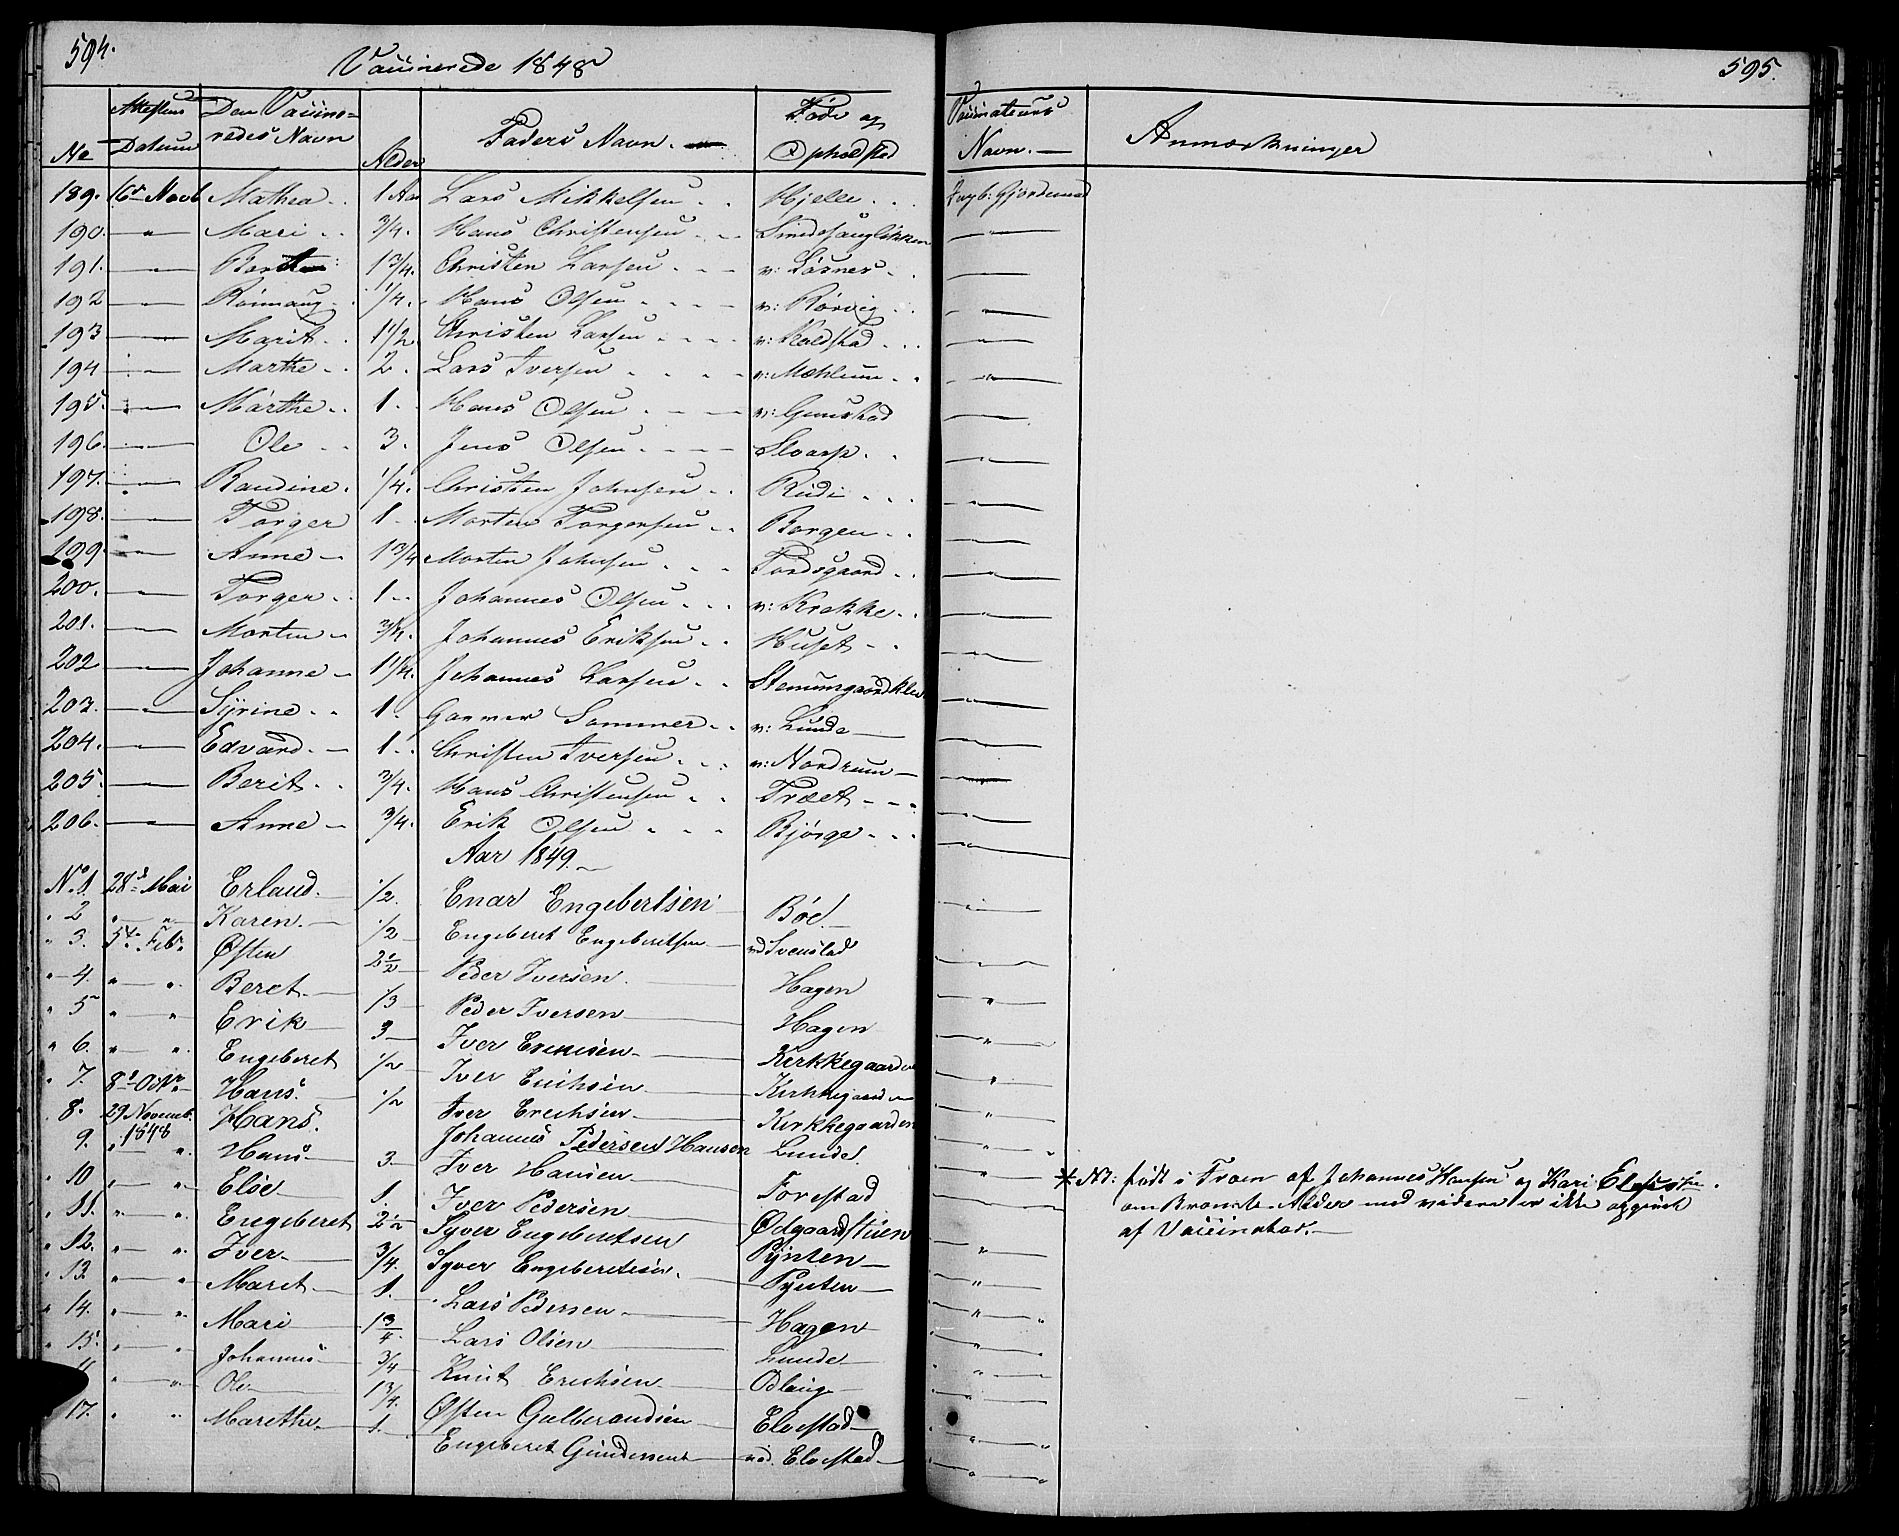 594.
Vaccinerede 1848
No
Attestens Datum
Den Vaccineredes Navn
Alder
Faders Navn.
Føde og Opholdsted
189. 16 Novb Mathea 1 Aar Lars Mikkelsen Hjelle
190. Mari 3/4. Hans Christensen
191. 1 3/4. Christen Larsen v: Løsnes
192 Rönnaug 1/4. Hans Olsen v: Rørvig
193 Marit 1 1/2 Christen Larsen v: Kaldstad
194 Marthe 2. Lars Iversen v: Mæhlum
195. Marthe 1. Hans Olsen v: Gunstad
196. Ole 3. Jens Olsen Skarp
197. Randine 1/4. Christen Johnsen Rudi
198. Torger 1 Morten Torgersen Borgen
199. Anne 1 3/4 Morten Johnsen Tordsgaard
200. Torger 1 Johannes Olsen v: Krakke
201. Morten 3/4. Johannes Eriksen Huset
202 Johanne 1 1/4. Johannes Larsen
203. Syrine 1. Garmer Sommer v: Lunde
204. Edvard 1 Christen Iversen v: Nordrum
205. Berit 3/4. Hans Christensen Træet
206. Anne 3/4. Erik Olsen Bjørge
Aar 1849.
No. 1. 28 Mai Erland 1/2. Enar Engebertsen Bøe
2 Karen 1/2 Engebret Engebretsen ved Svenstad
3. 5te Feb. Østen 2 1/2 Peder Iversen Hagen
4. Beret 1/3 Peder Iversen Hagen
5 Erik 3 Iver Kirkkegaarden
6. Engeberet 1/2 Iver Erichsen Kirkkegaarden
7. 8de Octr Hans 1/2 Iver Erichsen Kirkkegaarden
8. 29 Novemb. 1848 Hans. Johannes Pedersen Hansen Lunde
9. Hans 3 Iver Hansen Forestad
10 Elsé 1. Iver Pedersen Ødgaardstuen
11. Engeberet 2 1/2 Syver Engebretsen Pynten
12. Iver 3/4. Syver Engeberetsen Pynten
13 Maret 1. Lars Pedersen Hagen
14. Mari 1 3/4. Lars Olsen Lunde
15. Johannes 3/4 Knut Erichsen Odlaug
Ole 1 3/4. Østen Gulbrandsen Elvestad
17. Marethe 1. Engebret Gundersen ved. Elvestad
595.
Vaccinateurs Navn.
Anmærkninger
Ingb: Gjordemod
* NB: født i Fron af Johannes Hansen og Kari
om Alder med videre er ikke opgivet
af Vaccinator.